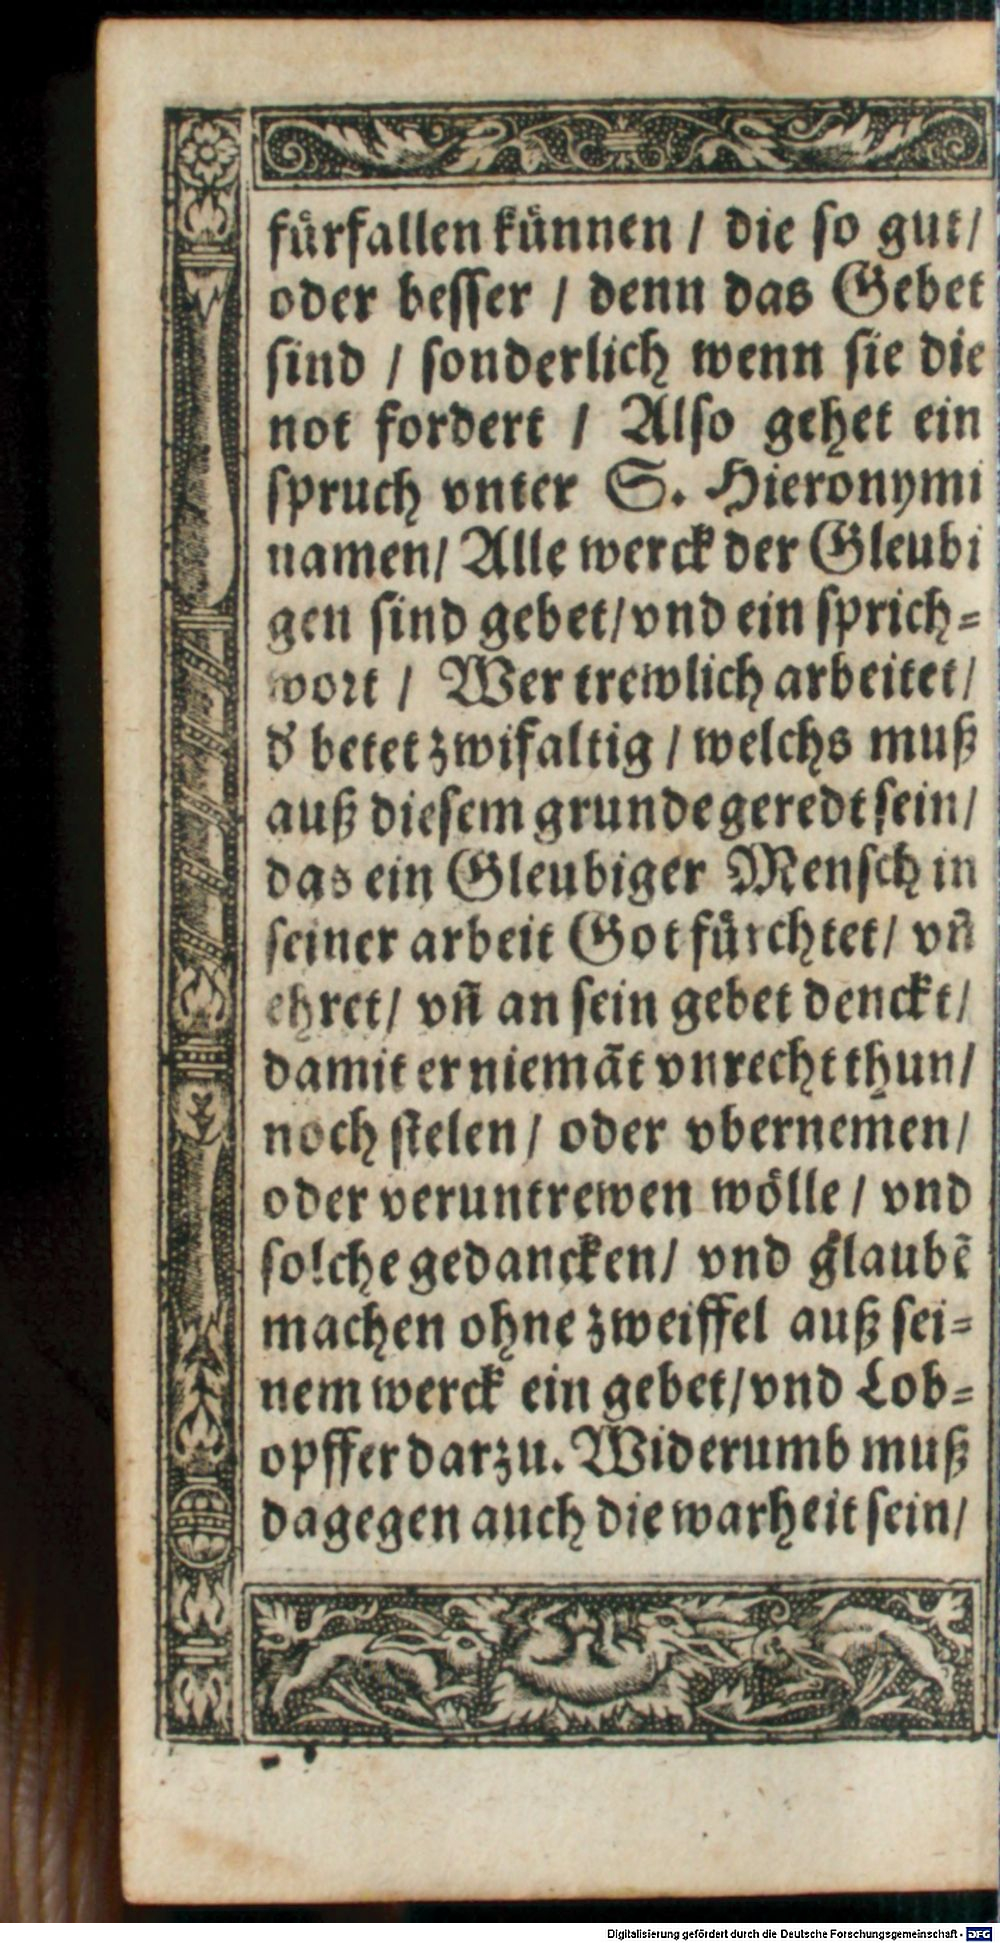 fuͤrfallen kuͤnnen / die so gut /
oder besser / denn das Gebet
sind / sonderlich wenn sie die
not fordert / Also gehet ein
spruch vnter S. Hieronymi
namen / Alle werck der Gleubi
gen sind gebet / vnd ein sprich⸗
wort / Wer trewlich arbeitet /
d' betet zwifaltig / welchs muß
auß diesem grunde geredt sein /
das ein Gleubiger Mensch in
seiner arbeit Got fuͤrchtet / vn̄
ehret / vn̄ an sein gebet denckt /
damit er niemāt vnrecht thun /
noch stelen / oder vbernemen /
oder veruntrewen woͤlle / vnd
solche gedancken / vnd glaubē
machen ohne zweiffel auß sei⸗
nem werck ein gebet / vnd Lob⸗
opffer darzu. Widerumb muß
dagegen auch die warheit sein /
Digitalisierung gefördert durch die Deutsche Forschungsgemeinschaft - DFG